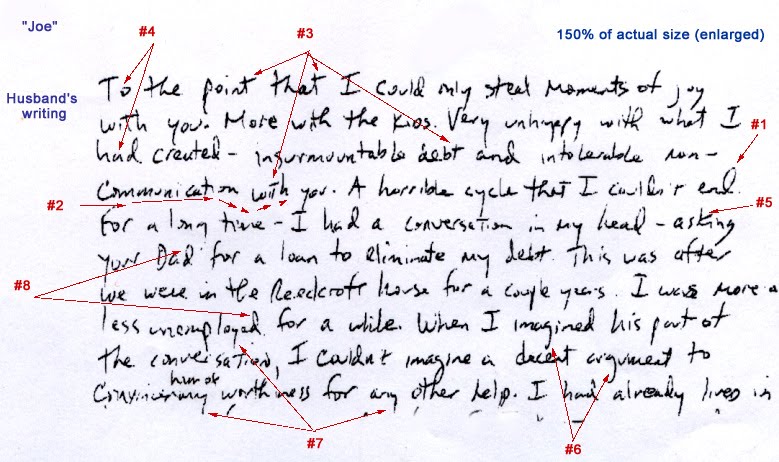 "Joe"
#4
#3
150% of actual size (enlarged)
Husband's
writing
To the point that I could only steal moments of joy
with you. More with the kids. Very unhappy with what I
had created - insurmountable debt and intolerable non-
#1
communication with you. A horrible cycle that I couldn't end
#2
for a long time - I had a conversation in my head - asking
#5
your Dad for a loan to eliminate my debt. This was after
#8
we were in the Reedcroft house for a couple years. I was more a
less unemployed for a while. When I imagined his part of
the conversation, I couldn't imagine a decent argument to
him of
worthiness for any other help. I had already lived in
#7
#6